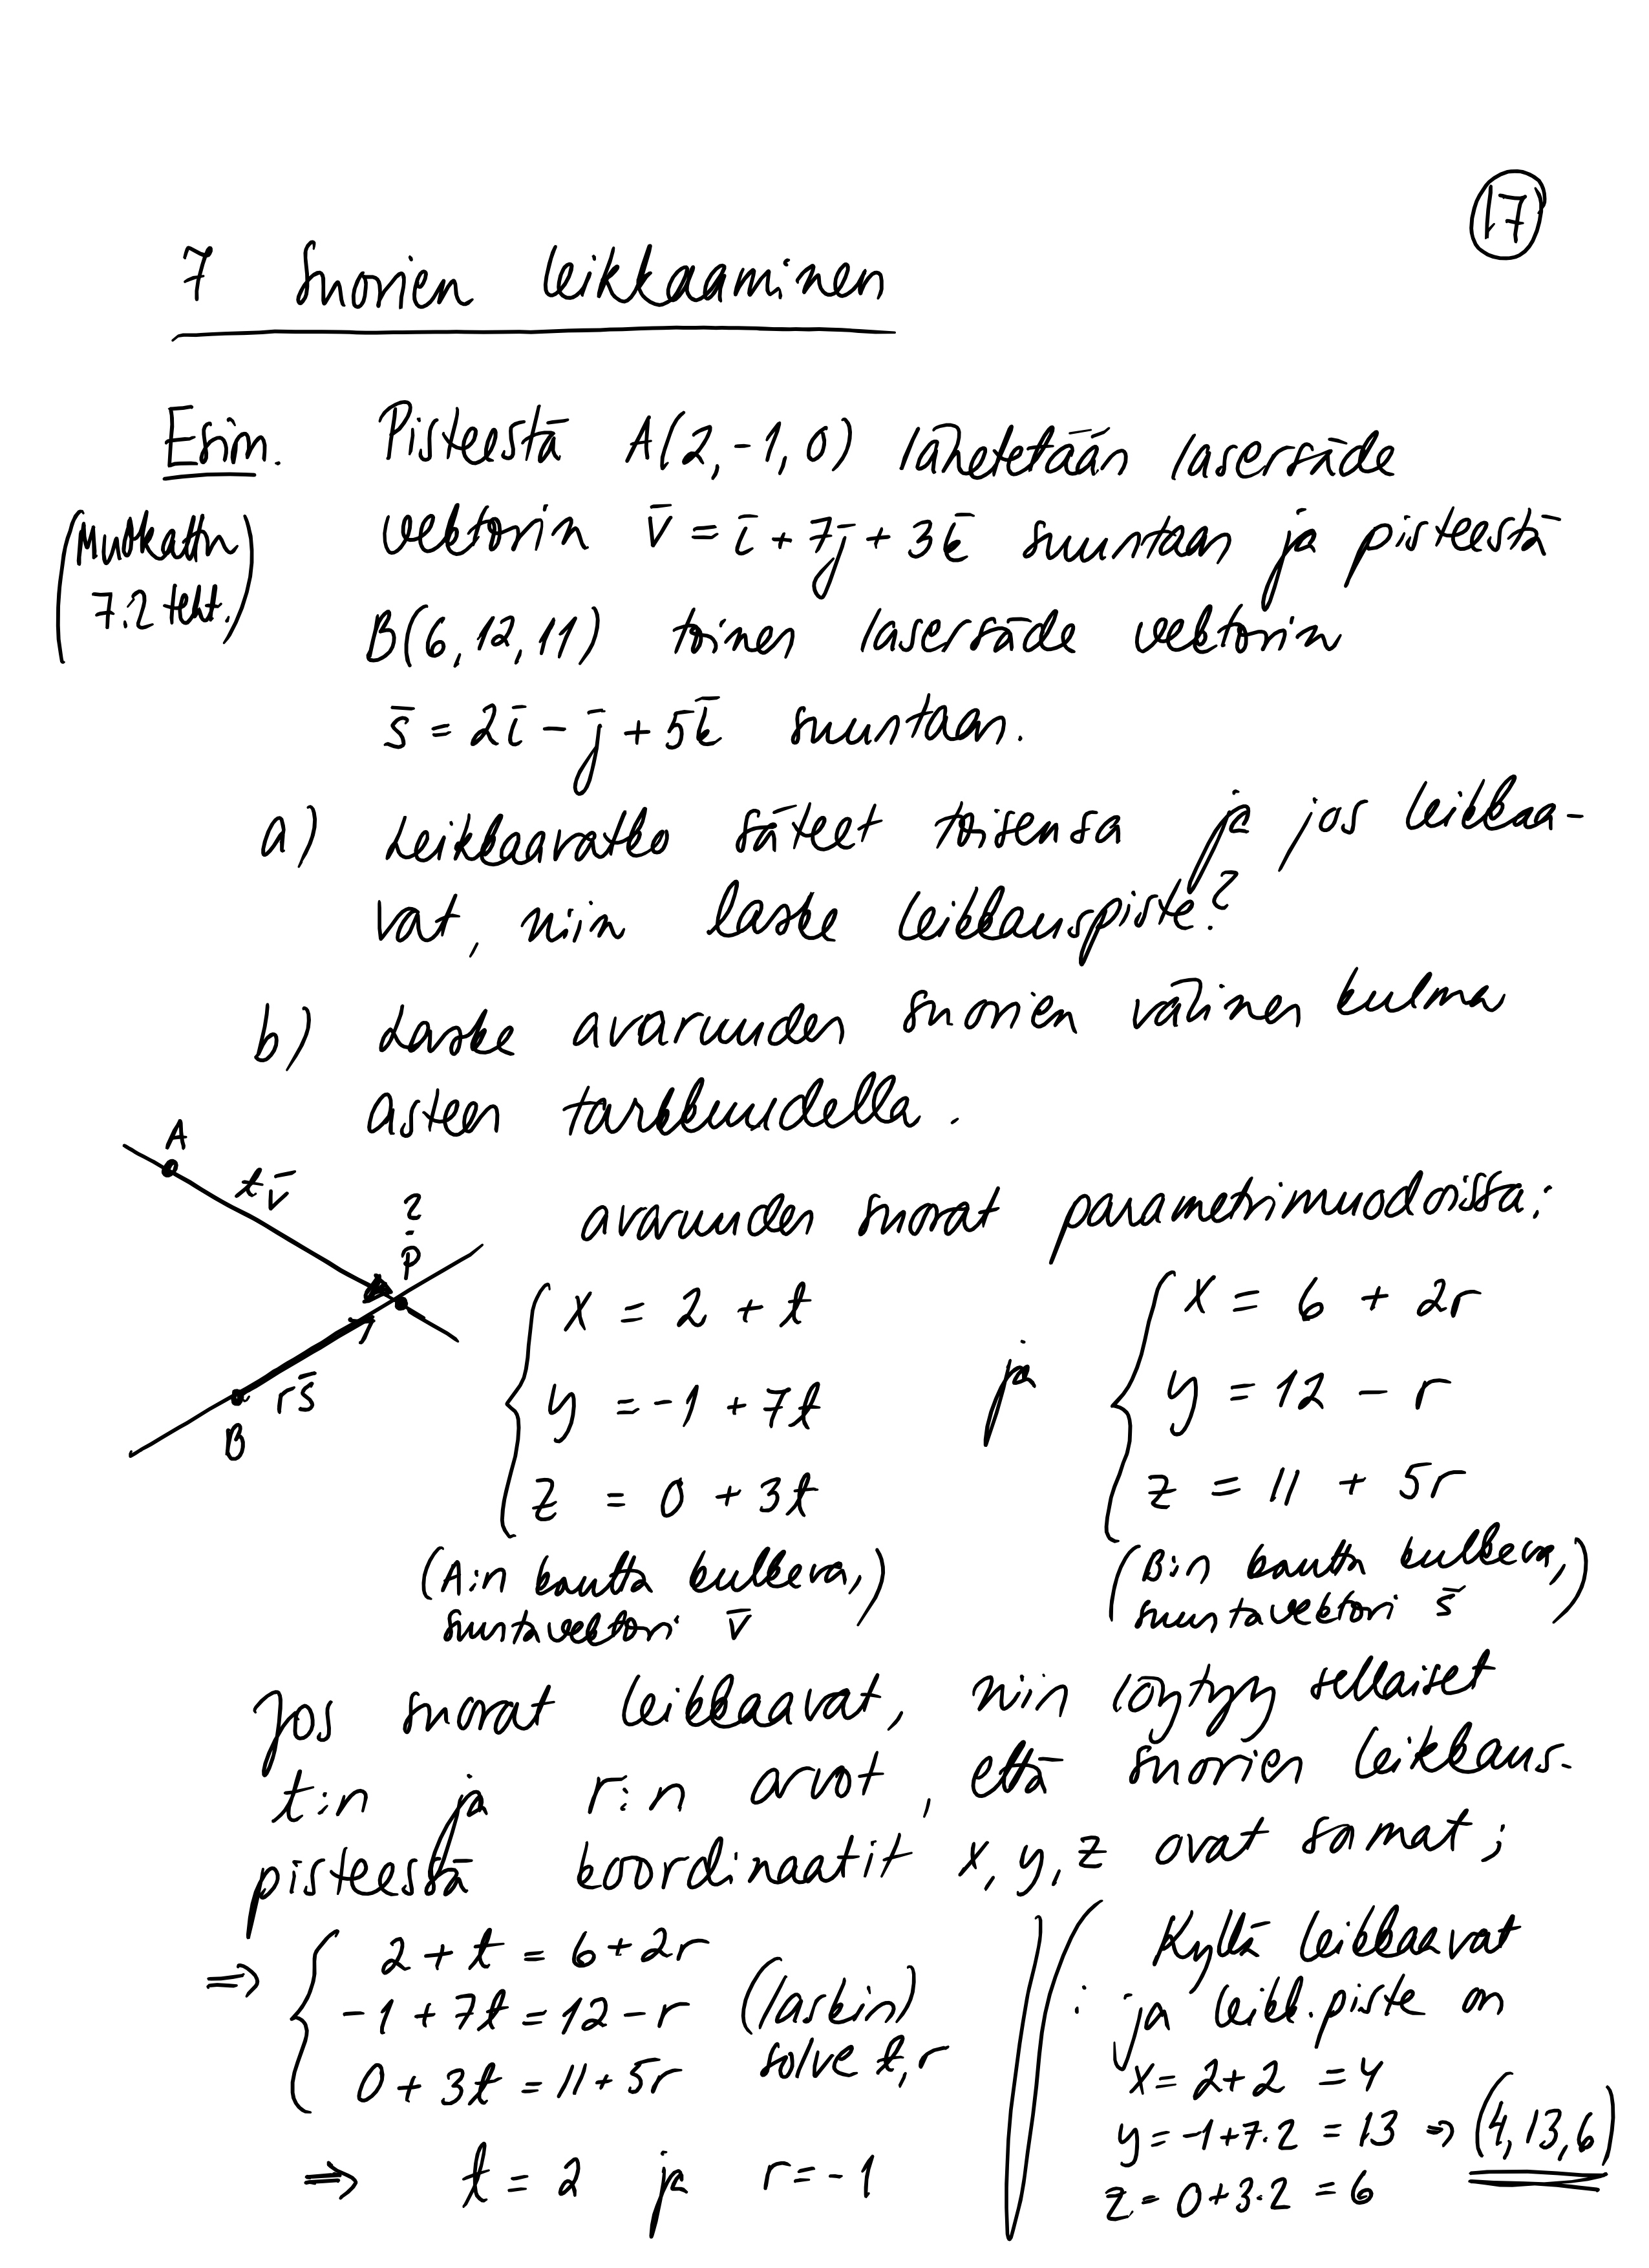 17
7 Suorien leikkaaminen
Esim. Pisteestä A(2,-1,0) lähetetään lasersäde
(Muokattu
7.2 teht.)
vektorin v̄ = ī + 7j̄ + 3k̄ suuntaan ja pisteestä
B(6,12,11) toinen lasersäde vektorin
s̄ = 2ī - j̄ + 5k̄ suuntaan.
a) Leikkaavatko säteet toisensa ja jos leikkaa-
vat, niin laske leikkauspiste?
b) Laske avaruuden suorien välinen kulma
asteen tarkkuudella.
A
tv̄
?
P
rs̄
B
avaruuden suorat parametrimuodoissa:
x = 2 + t
y = -1 + 7t
z = 0 + 3t
(A:n kautta kulkeva,
suuntavektori v̄)
ja
x = 6 + 2r
y = 12 - r
z = 11 + 5r
(B:n kautta kulkeva,
suuntavektori s̄)
Jos suorat leikkaavat, niin löytyy sellaiset
t:n ja r:n arvot, että suorien leikkaus-
pisteessä koordinaatit x, y, z ovat samat;
2 + t = 6 + 2r
⇒ -1 + 7t = 12 - r (laskin)
0 + 3t = 11 + 5r solve t, r
⇒ t = 2 ja r = -1
Kyllä leikkaavat
: ja leikk.piste on
x = 2+2 = 4
y = -1+7·2 = 13 ⇒ (4,13,6)
z = 0+3·2 = 6